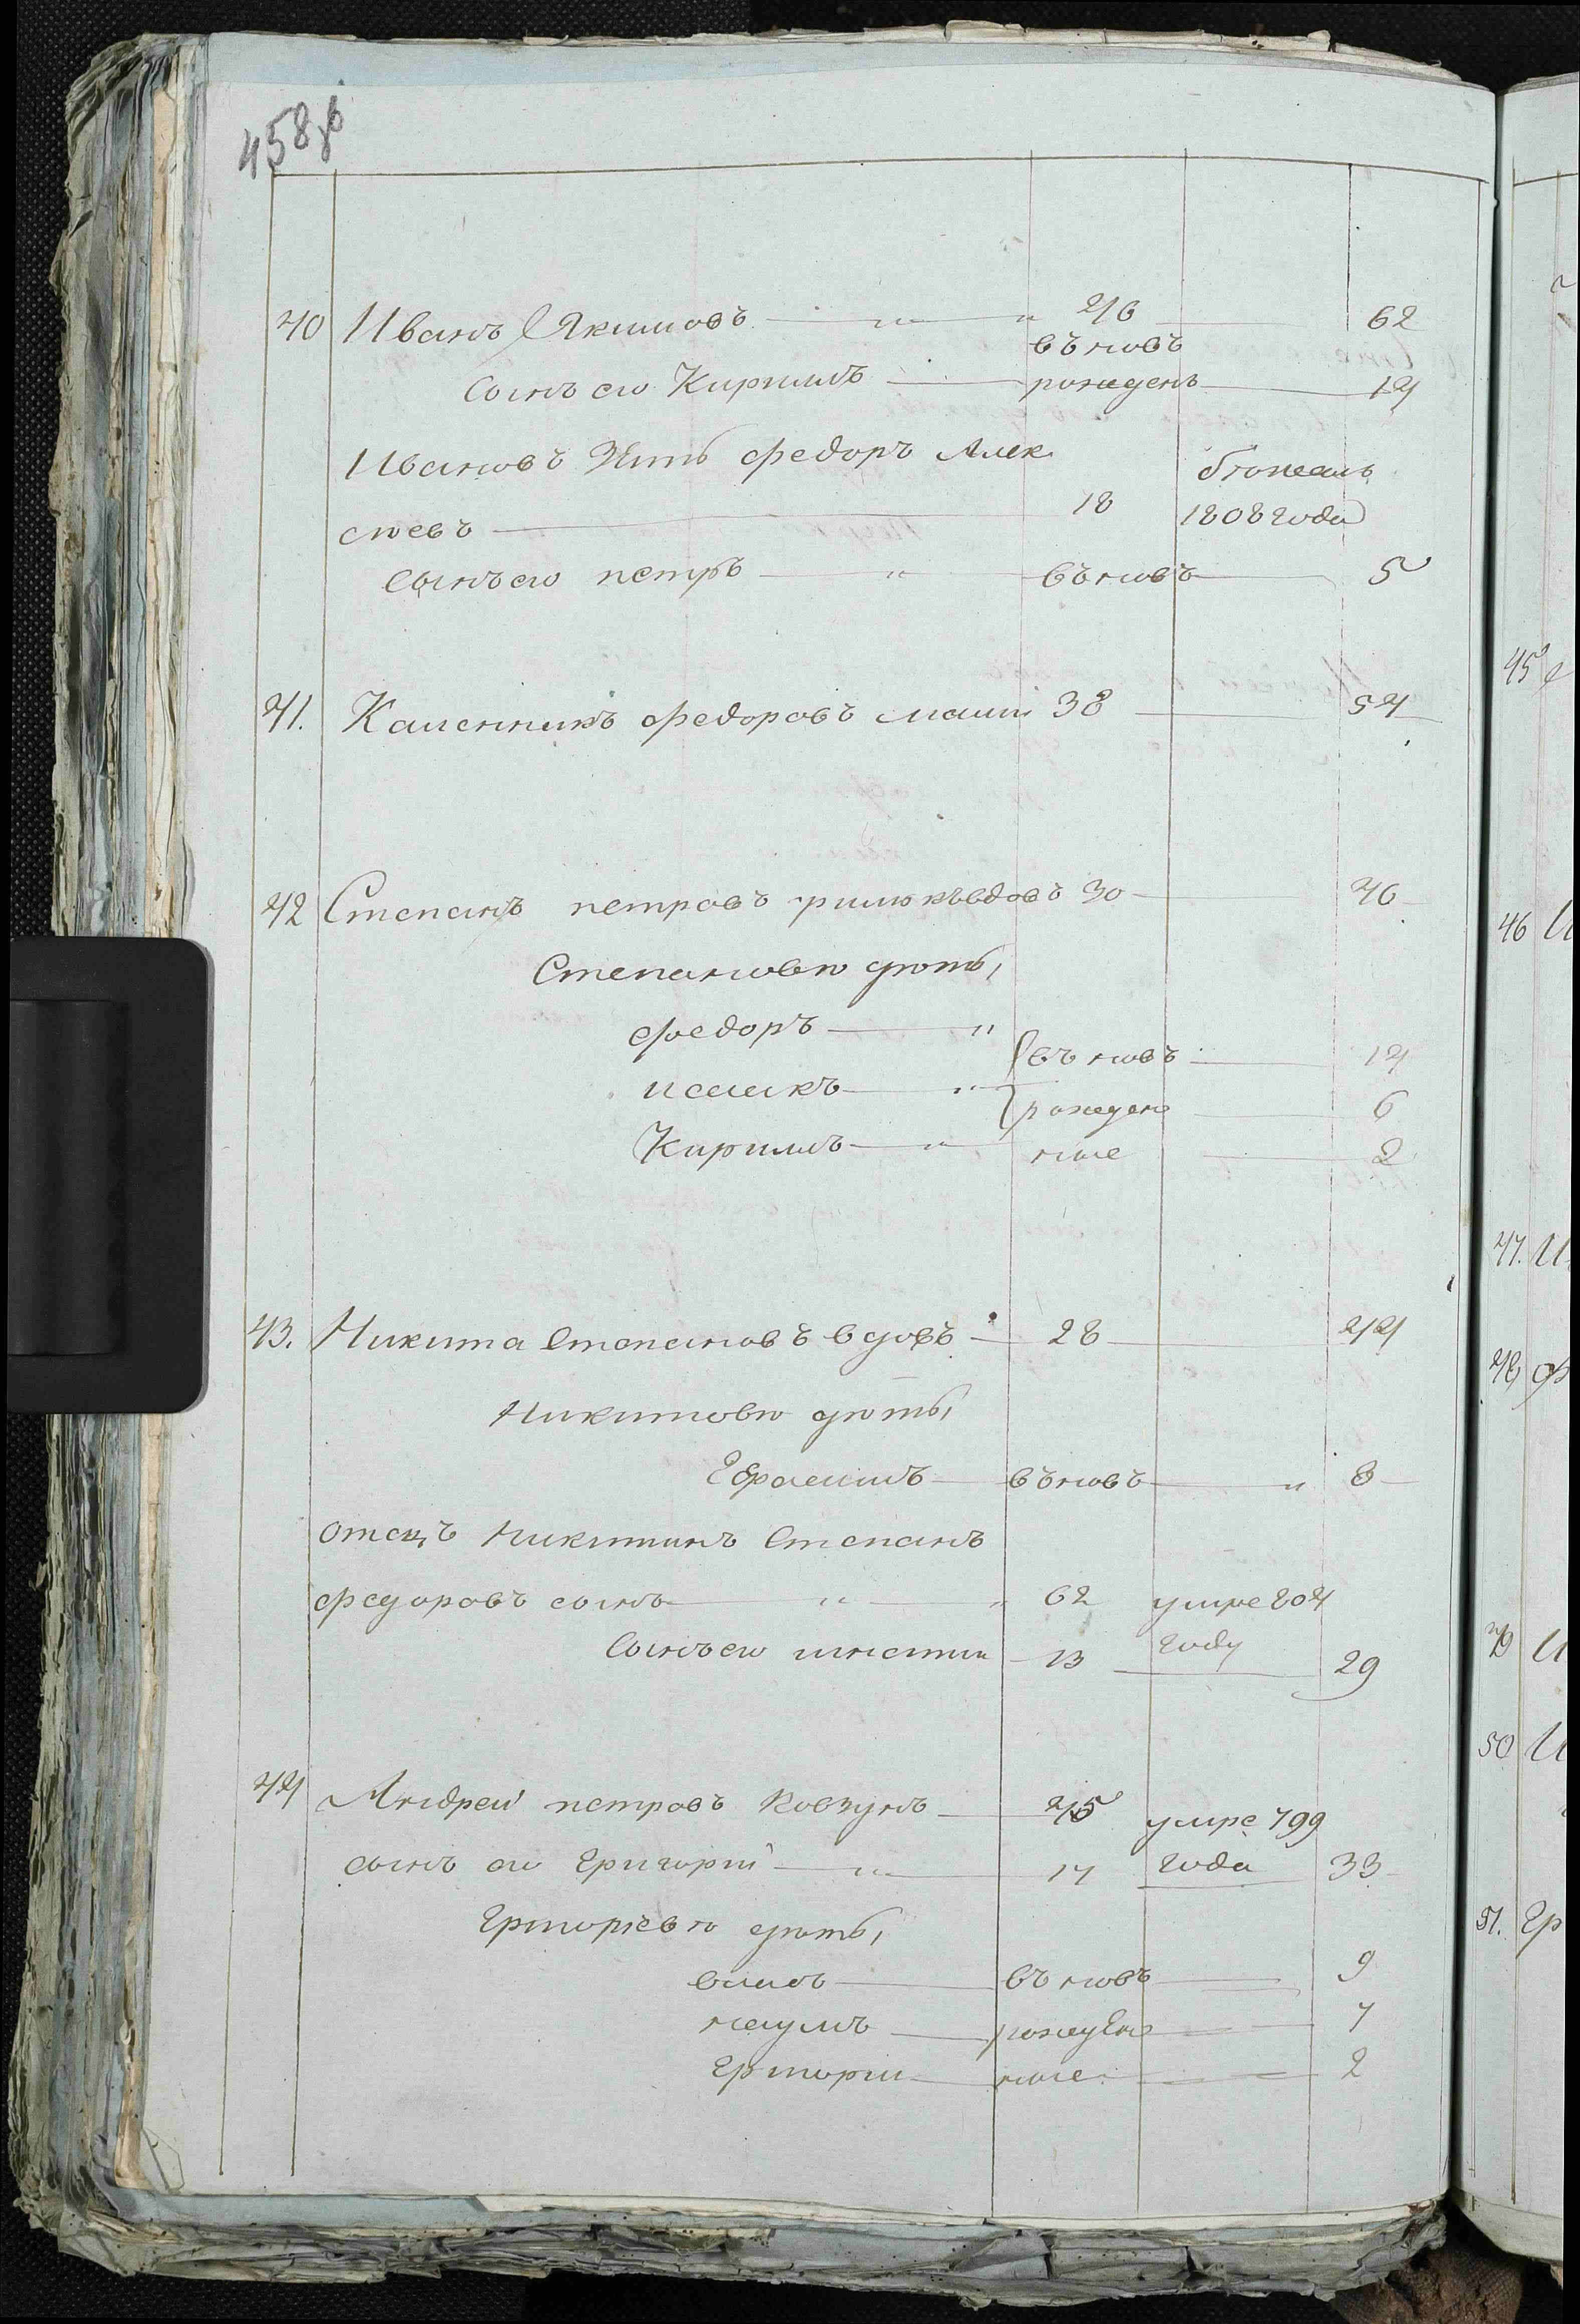 458об
40 Иванъ Якимовъ 46 62
въновь
сынъ его Кирилъ рожденъ 14
Ивановъ зять федоръ Алек бежалъ
сѣевъ 18 1808 года
сынъ его петръ въновь 5
41. Каленикъ федоровъ 38 54
42 Степанъ петровъ 30 46
Степановы дѣти,
федоръ въновь 14
исакъ рожден 6
Кирилъ ные 2
43. Никита степановъ вдовъ 28 44
Никитовы дѣти,
Ефраимъ въновь 8
отецъ никитинъ степанъ
федоровъ сынъ 62 умре 804
сынъ его 13 году 29
44 Андрей петровъ Ковзунъ 45 умре 799
сынъ его григорій 17 года 33
григоріевы дѣти,
въновь 9
наумъ рожден 7
григорій ные 2
45
46 И
47. И
48 ф
49 И
50 И
51. Гр